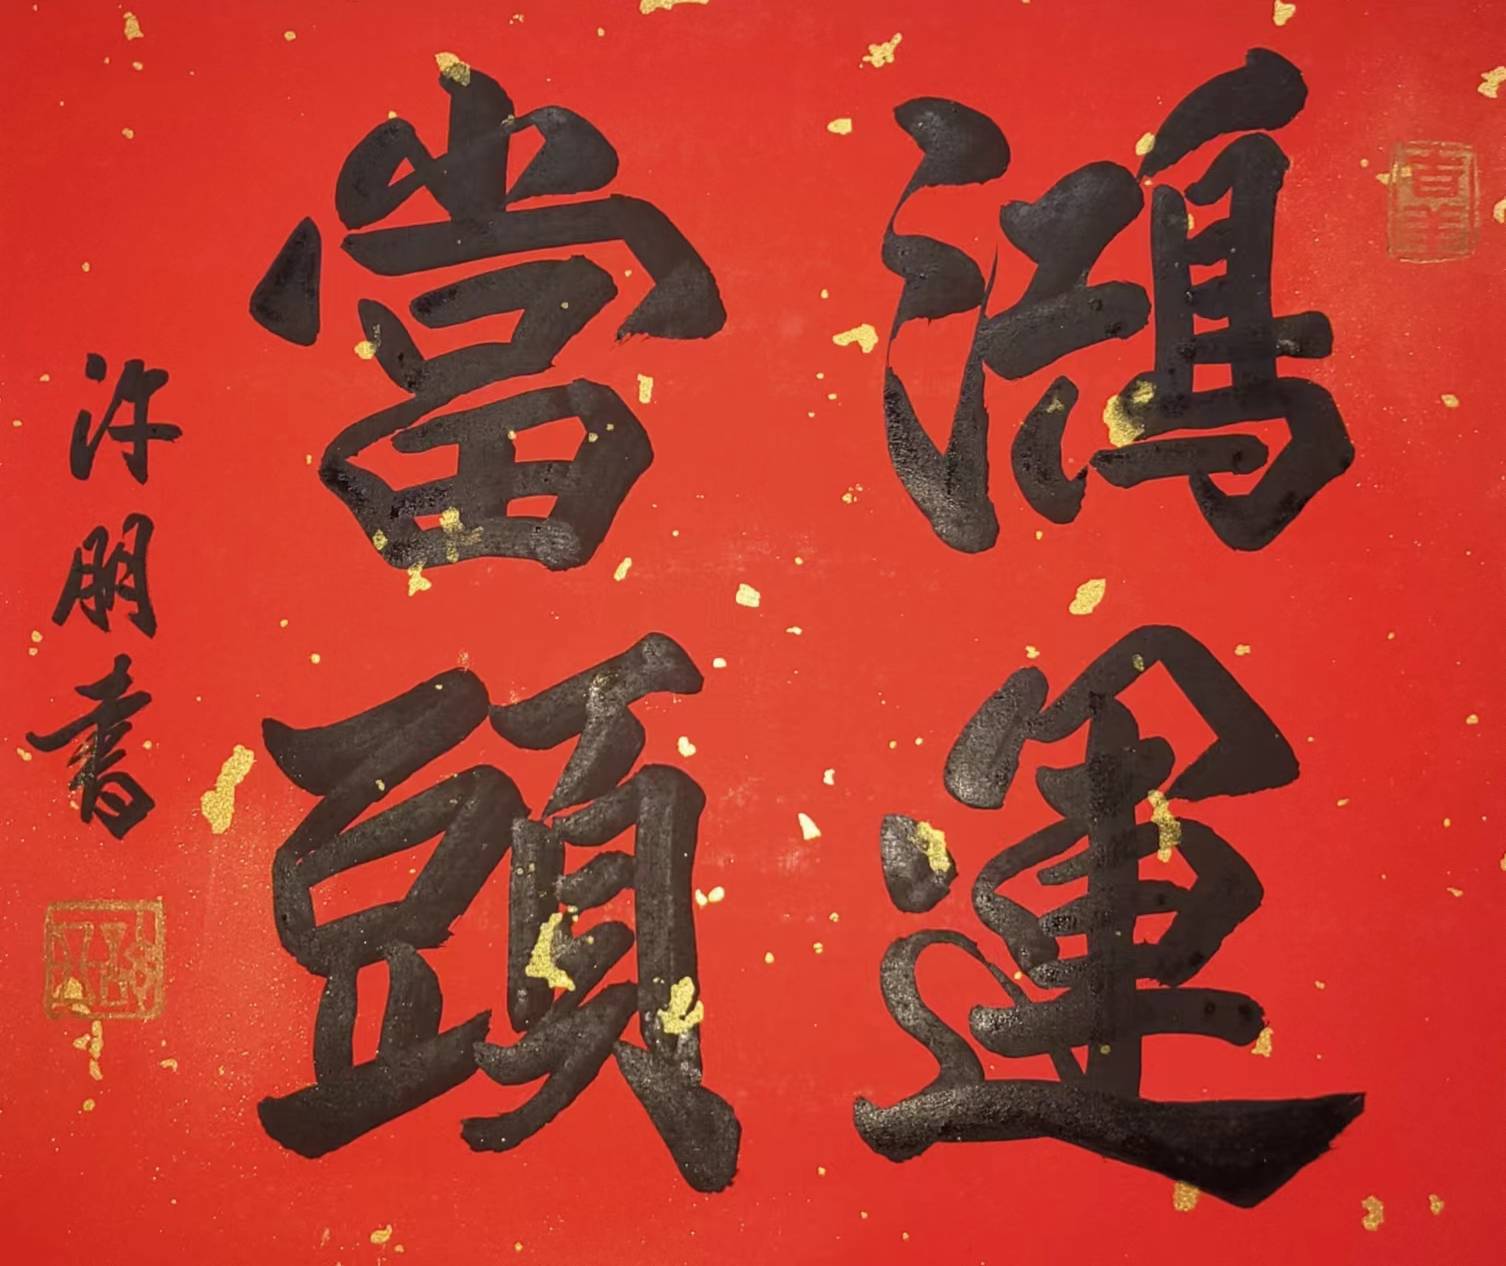 鴻運
當頭
許朋書